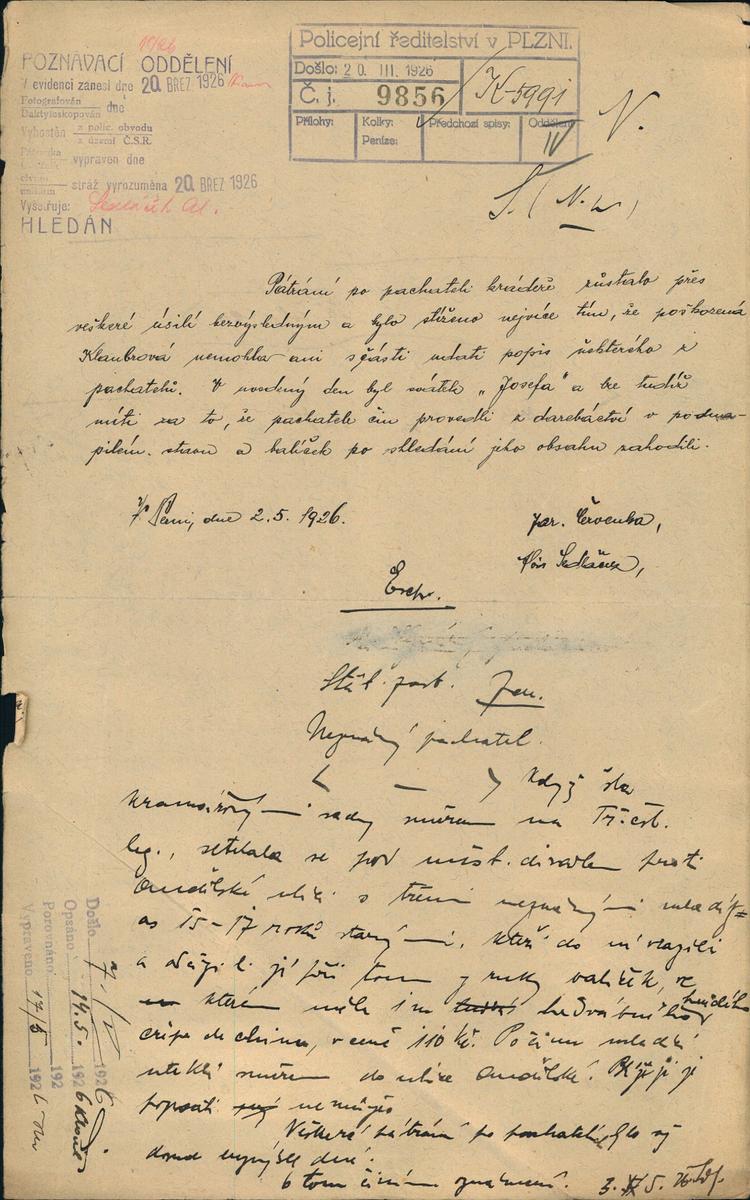 19/26
POZNÁVACÍ ODDĚLENÍ
V evidenci zanesl dne 20. BŘEZ 1926
Fotografován
Daktyloskopován dne
Vyhostěn z polic. obvodu
z území Č.S.R.
vypraven dne
stráž vyrozuměna 20 BŘEZ 1926
Vyšetřuje: Sedláček Al.
HLEDÁN
Policejní ředitelství v PLZNI.
Došlo: 20. III. 1926
Č. j. 9856 K-5991
Přílohy: Kolky: Předchozí spisy: Oddělení
Peníze: IV
N.
S. (N.
Pátrání po pachateli krádeže zůstalo přes
veškeré úsilí bezvýsledným a bylo stíženo nejvíce tím, že poškozená
Klaubrová nemohla ani sčásti udati popis některého z
pachatelů. V uvedený den byl svátek „Josefa" a lze tudíž
míti za to, že pachatelé čin provedli z darebáctví v podna-
pilém. stavu a balíček po shledání jeho obsahu zahodili.
V Plzni, dne 2.5. 1926.
Jar. Červenka,
Alois Sedláček,
Exp.
Stát. zast.
Neznámý pachatel.
< — > Když šla
Kramářovými sady směrem na Tř. čsl.
leg., setkala se pod měst. divadlem proti
Andělské ulici s třemi neznámými mladíky
as 15-17 roků starými, kteří do ní vrazili
a odcizili jí při tom z ruky balíček, ve
kterém měla 1 m hedvábného
crépe de chine, v ceně 110 Kč. Potom mladíci
utekli směrem do ulice Andělské. Blíže je
popsati nemůže.
Veškeré pátrání po pachateli bylo
dosud
O tom činím oznámení. 3. 5. 26.
Došlo 7/V 1926
Opsáno 14.5. 1926
Porovnáno 192
Vypraveno 17/5 1926